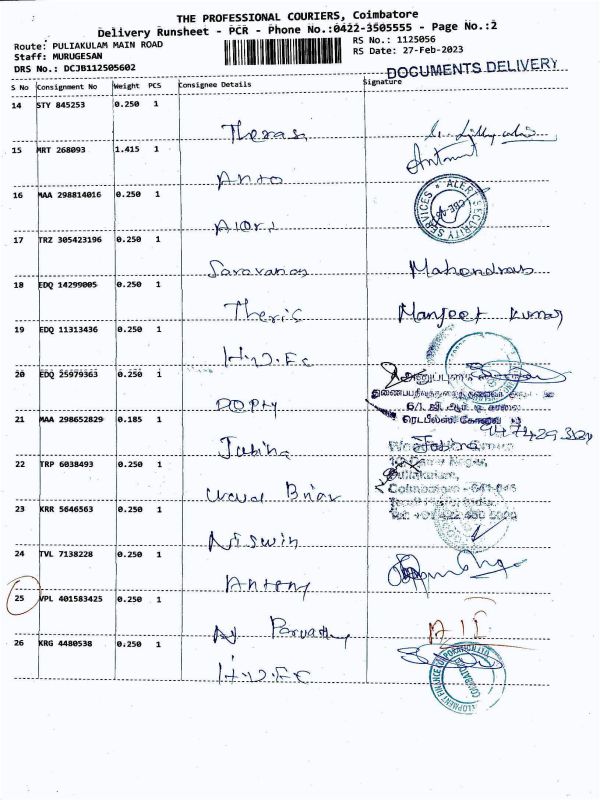 THE PROFESSIONAL COURIERS, Coimbatore
Delivery Runsheet - PCR - Phone No.:0422-3505555 - Page No.:2
Route: PULIAKULAM MAIN ROAD
RS No.: 1125056
Staff: MURUGESAN
RS Date: 27-Feb-2023
DRS No.: DCJB112505602
DOCUMENTS DELIVERY
S No Consignment No Weight PCS Consignee Details Signature
14 STY 845253 0.250 1
Theras
15 MRT 268093 1.415 1
Anto
16 MAA 298814016 0.250 1
ALERT SECURITY SERVICES CBE-45
Alort
17 TRZ 305423196 0.250 1
Saravanan Mahendran
18 EDQ 14299005 0.250 1
Theris Manjeet Kumar
19 EDQ 11313436 0.250 1
H.D.Fc
20 EDQ 25979363 0.250 1
6/1, ஜி. ஆர். டி. காலை
21 MAA 298652829 0.185 1
Jabina
22 TRP 6038493 0.250 1
Puliakulam,
Coimbatore - 641 045
Tel: +91 422 450 5000
23 KRR 5646563 0.250 1
Niswin
24 TVL 7138228 0.250 1
Antony
25 VPL 401583425 0.250 1
Parvathy
26 KRG 4480538 0.250 1
H.D.Fc